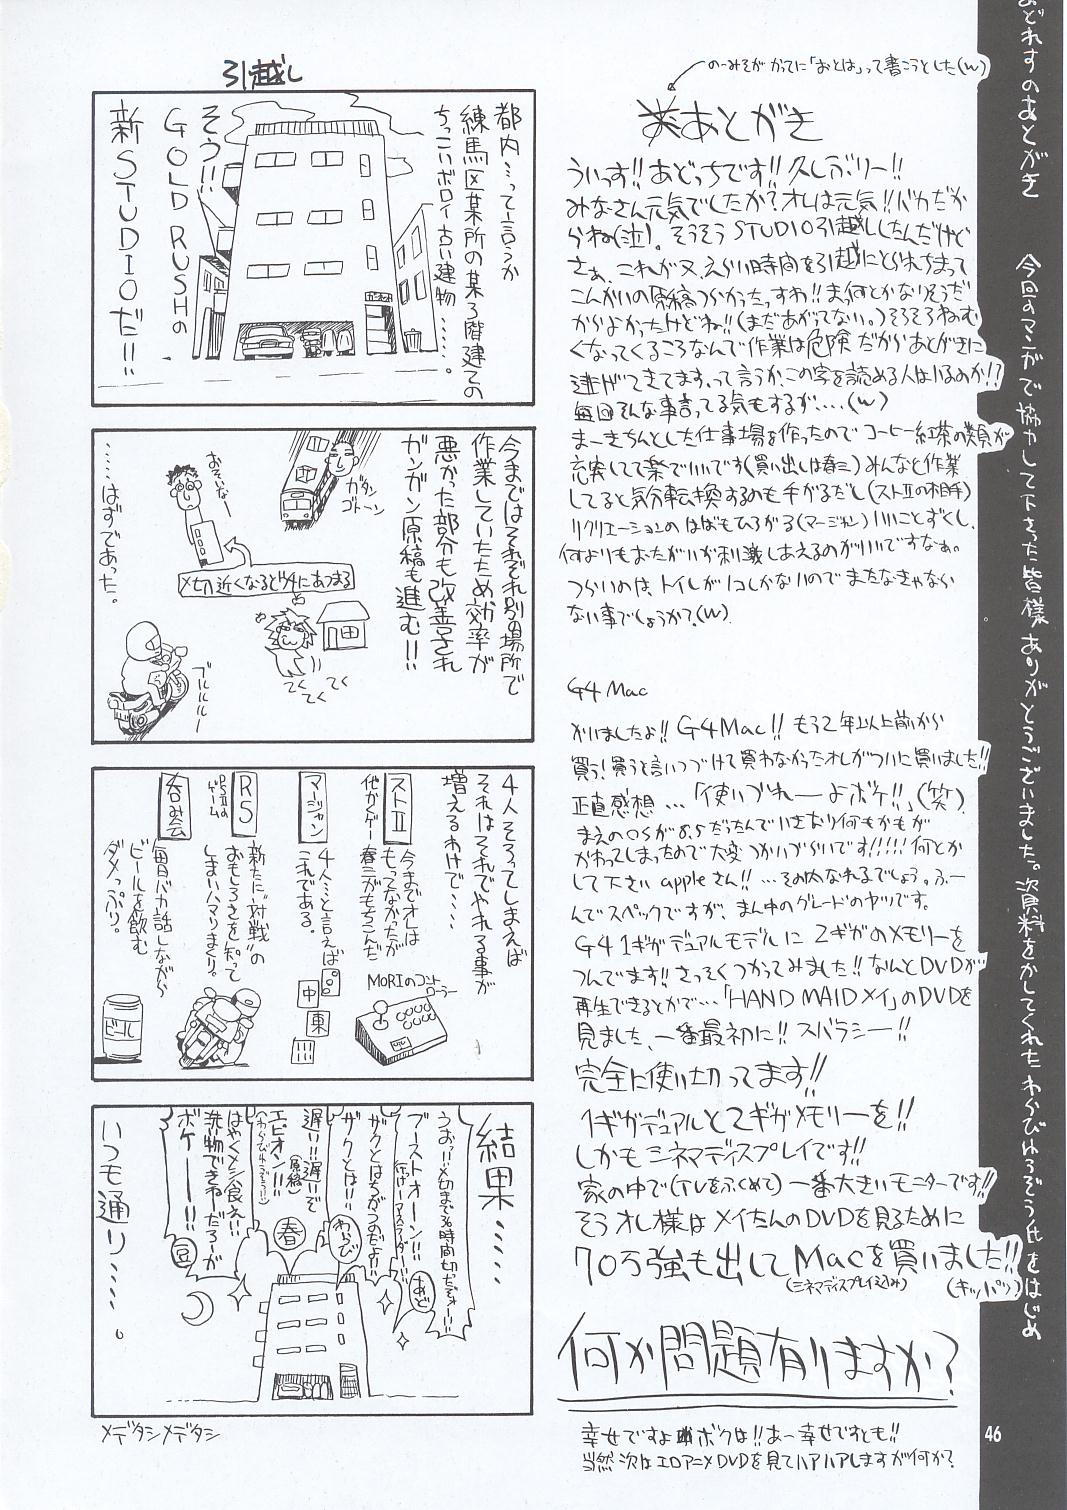 あどれすのあとがき　今回のマンガで協力して下さった皆様ありがとうございました。資料をかしてくれたわらびわろぞう氏をはじめ
のーみそが かってに「おとは」って書こうとした(w)
あとがき
ういっす!!あどっちです!!久しぶりー!!
みなさん元気でしたか?オレは元気!!バカだか
らね(泣)。そうそうSTUDIO引越ししたんだけど
さぁ、これが又、えらい時間を引越にとられちまって
こんかいの原稿つらかったっすわ!!ま、何とかなりそうだ
からよかったけどね!!(まだあがってない。)そろそろねむ
くなってくるころなんで作業は危険だからあとがきに
逃げてきてます。って言うか、この字を読める人はいるのか!?
毎回そんな事言ってる気もするが....(w)
まーきちんとした仕事場を作ったのでコーヒー紅茶の類が
充実してて楽でいいです(買い出しは春三)みんなと作業
してると気分転換するのも手がるだし(ストIIの相手)
リクリエーションのはばもひろがる(マージャン)いいことずくし、
何よりもおたがいが刺激しあえるのがいいですなぁ。
つらいのは、トイレが1コしかないのでまたなきゃなら
ない事でしょうか?(w)
G4 Mac
かいましたよ!!G4Mac!!もう2年以上前から
買う!買うと言いつづけて買わなかったオレがついに買いました!!
正直感想…「使いづれーよボケ!!」(笑)
まえのOSが8.5だったんでいきなり何もかもが
かわってしまったので大変つかいづらいです!!!!!何とか
して下さいappleさん!!…その内なれるでしょう。ふー
んでスペックですが、まん中のグレードのヤツです。
G4 1ギガデュアルモデルに2ギガのメモリーを
つんでます!!さっそくつかってみました!!なんとDVDが
再生できるとかで…「HAND MAIDメイ」のDVDを
見ました、一番最初に!!スバラシー!!
完全に使い切ってます!!
1ギガデュアルと2ギガメモリーを!!
しかもシネマディスプレイです!!
家の中で(TVをふくめて)一番大きいモニターです!!
そうオレ様はメイたんのDVDを見るために
70万強も出してMacを買いました!!
(シネマディスプレイ込み)
(キッパリ)
何か問題有りますか?
幸せですよボクは!!あー幸せですとも!!
当然次はエロアニメDVDを見てハアハアしますが何か?
46
引越し
都内…って言うか
練馬区某所の某3階建ての
ちっこいボロイ古い建物……。
そう!!
GOLD RUSHの
新STUDIOだ!!
今まではそれぞれ別の場所で
作業していたため効率が
悪かった部分も改善され
ガンガン原稿も進む!!
ガタン
ゴトーン
おそいなー
〆切近くなるとウチにあつまる
てくてくてくてく
ブルルルルー
……はずであった。
4人そろってしまえば
それはそれでやれる事が
増えるわけで……
ストII
今までオレは
もってなかったが
春三がもちこんだ
MORIのコントローラー
マージャン
4人…と言えば
これである。
中
東
RS
PSIIのゲーム
新たに"対戦"の
おもしろさを知って
しまいハマりまくり。
呑み会
毎日バカ話しながら
ビールを飲む
ダメっぷり。
ビール
結果……
うおっ!!〆切まで36時間切ったぞォー!!
あど
ザクとはちがうのだよ!!
ザクとは!!
わらび
遅い!!遅いぞ
エピオン!!
(原稿)
春
はやくメシ食え!!
洗い物できねーだろーが
ボケーー!!
豆
いつも通り……。
メデタシメデタシ